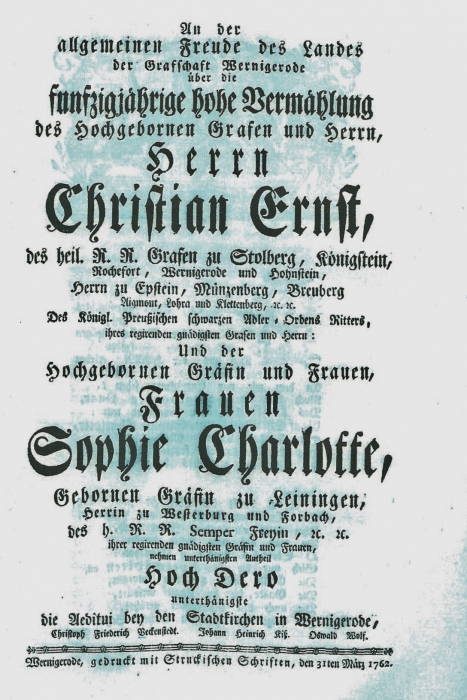 An der
allgemeinen Freude des Landes
der Grafschaft Wernigerode
über die
funfzigjährige hohe Vermählung
des Hochgebornen Grafen und Herrn,
Herrn
Christian Ernst,
des heil. R. R. Grafen zu Stolberg, Königstein,
Rochefort, Wernigerode und Hohnstein,
Herrn zu Epstein, Münzenberg, Breuberg
Aigmont, Lohra und Klettenberg, ꝛc. ꝛc.
Des Königl. Preußischen schwarzen Adler-Ordens Ritters,
ihres regirenden gnädigsten Grafen und Herrn:
Und der
Hochgebornen Gräfin und Frauen,
Frauen
Sophie Charlotte,
Gebornen Gräfin zu Leiningen,
Herrin zu Westerburg und Forbach,
des h. R. R. Semper Freyin, ꝛc. ꝛc.
ihrer regirenden gnädigsten Gräfin und Frauen,
nehmen unterthänigsten Antheil
Hoch Dero
unterthänigste
die Aeditui bey den Stadtkirchen in Wernigerode,
Christoph Friederich Beckenstedt. Johann Heinrich Kiß. Oswald Wolf.
Wernigerode, gedruckt mit Struckischen Schriften, den 31ten März 1762.